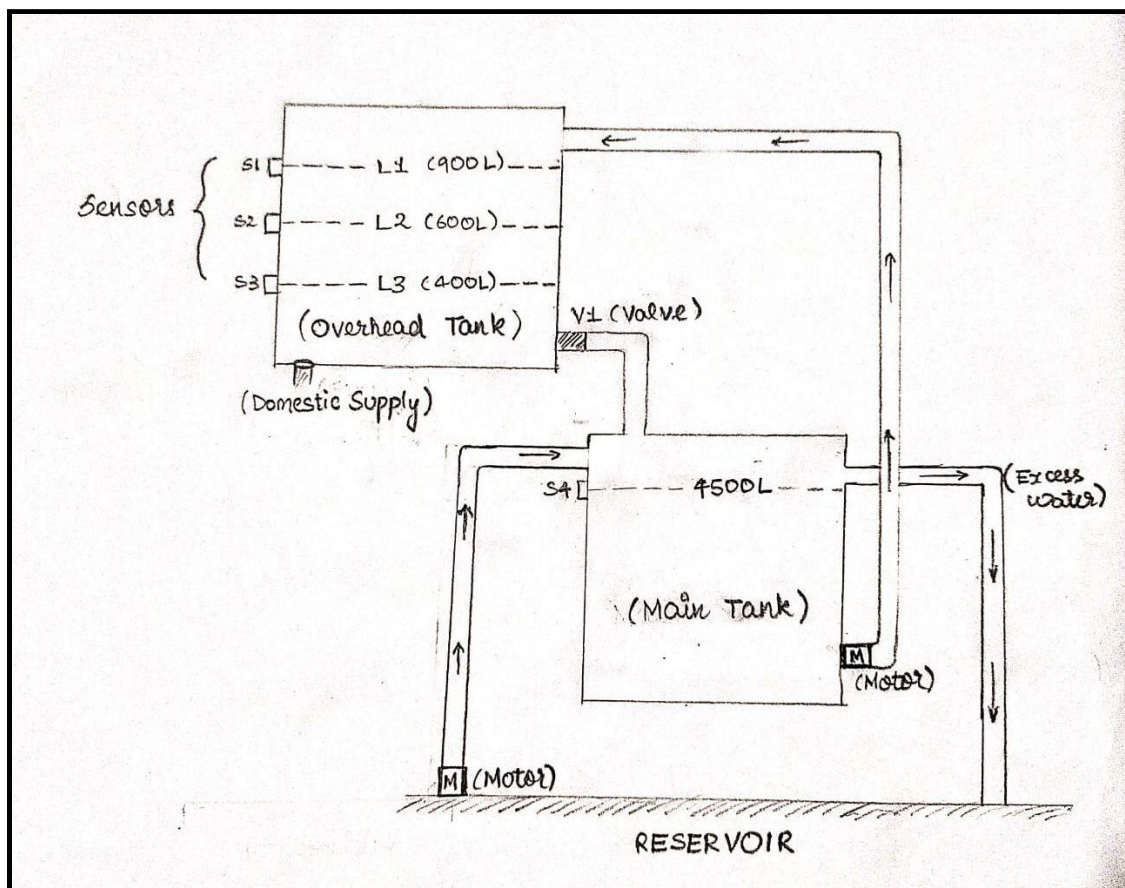 S1
L1 (900L)
Sensors
S2
L2 (600L)
S3
L3 (400L)
(Overhead Tank)
V1 (Valve)
(Domestic Supply)
S4
4500L
(Excess
water)
(Main Tank)
M
(Motor)
M (Motor)
RESERVOIR